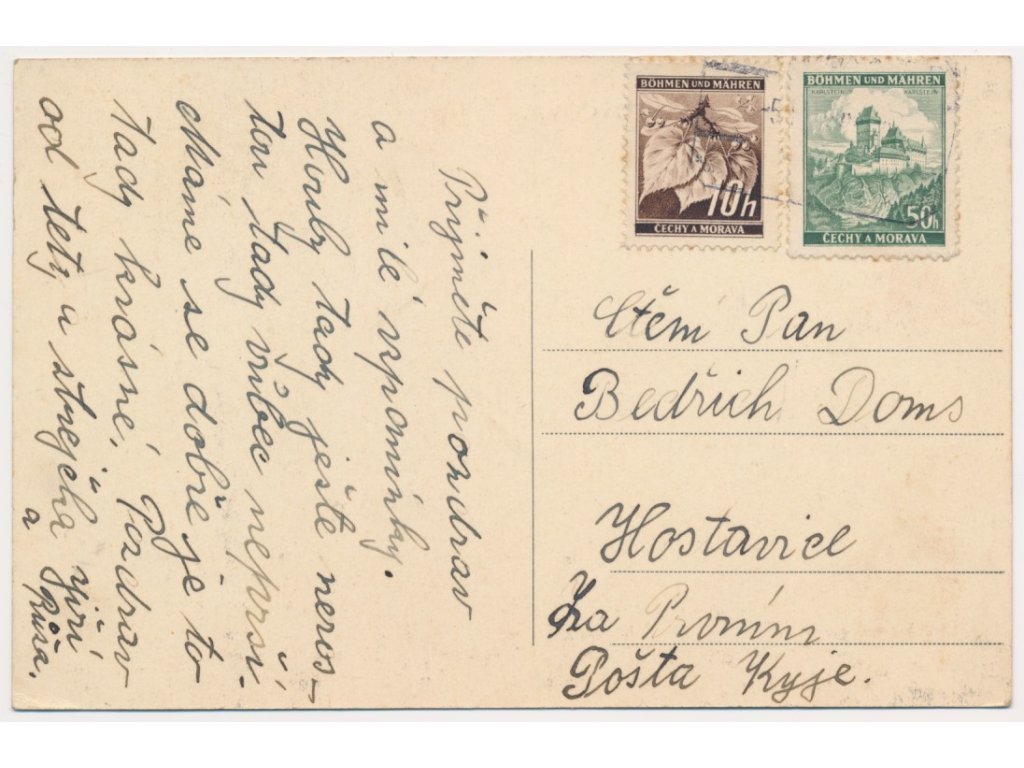 BÖHMEN UND MÄHREN
10h
ČECHY A MORAVA
BÖHMEN UND MÄHREN
KARLSTEIN KARLŠTEJN
50h
ČECHY A MORAVA
Přijměte pozdrav
a milé vzpomínky.
Houby tady ještě neros-
tou tady vůbec neprší.
Máme se dobře je to
tady krásné, Pozdrav
od tety a strejcha Jiří
a Růža.
Ctěm Pan
Bedřich Doms
Hostavice
Za
Pošta Kyje.